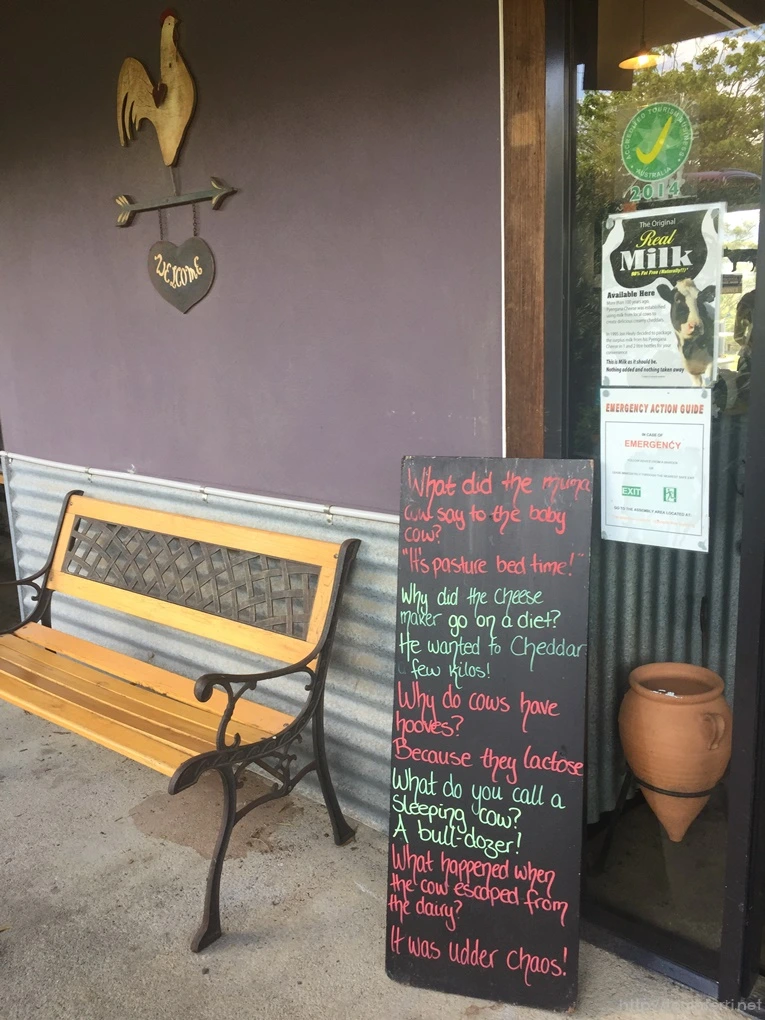 WELCOME
ACCREDITED TOURISM
AUSTRALIA
2014
The Original
Real
Milk
Available Here
This is Milk as it should be.
Nothing added and nothing taken away
EMERGENCY ACTION GUIDE
IN CASE OF
EMERGENCY
EXIT
What did the muma
cow say to the baby
cow?
"It's pasture bed time!"
Why did the cheese
maker go on a diet?
He wanted to Cheddar
a few kilos!
Why do cows have
hooves?
Because they lactose
What do you call a
sleeping cow?
A bull-dozer!
What happened when
the cow escaped from
the dairy?
It was udder chaos!